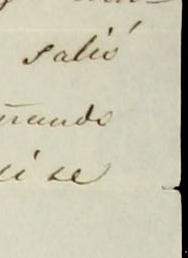 salió
ñando
i se